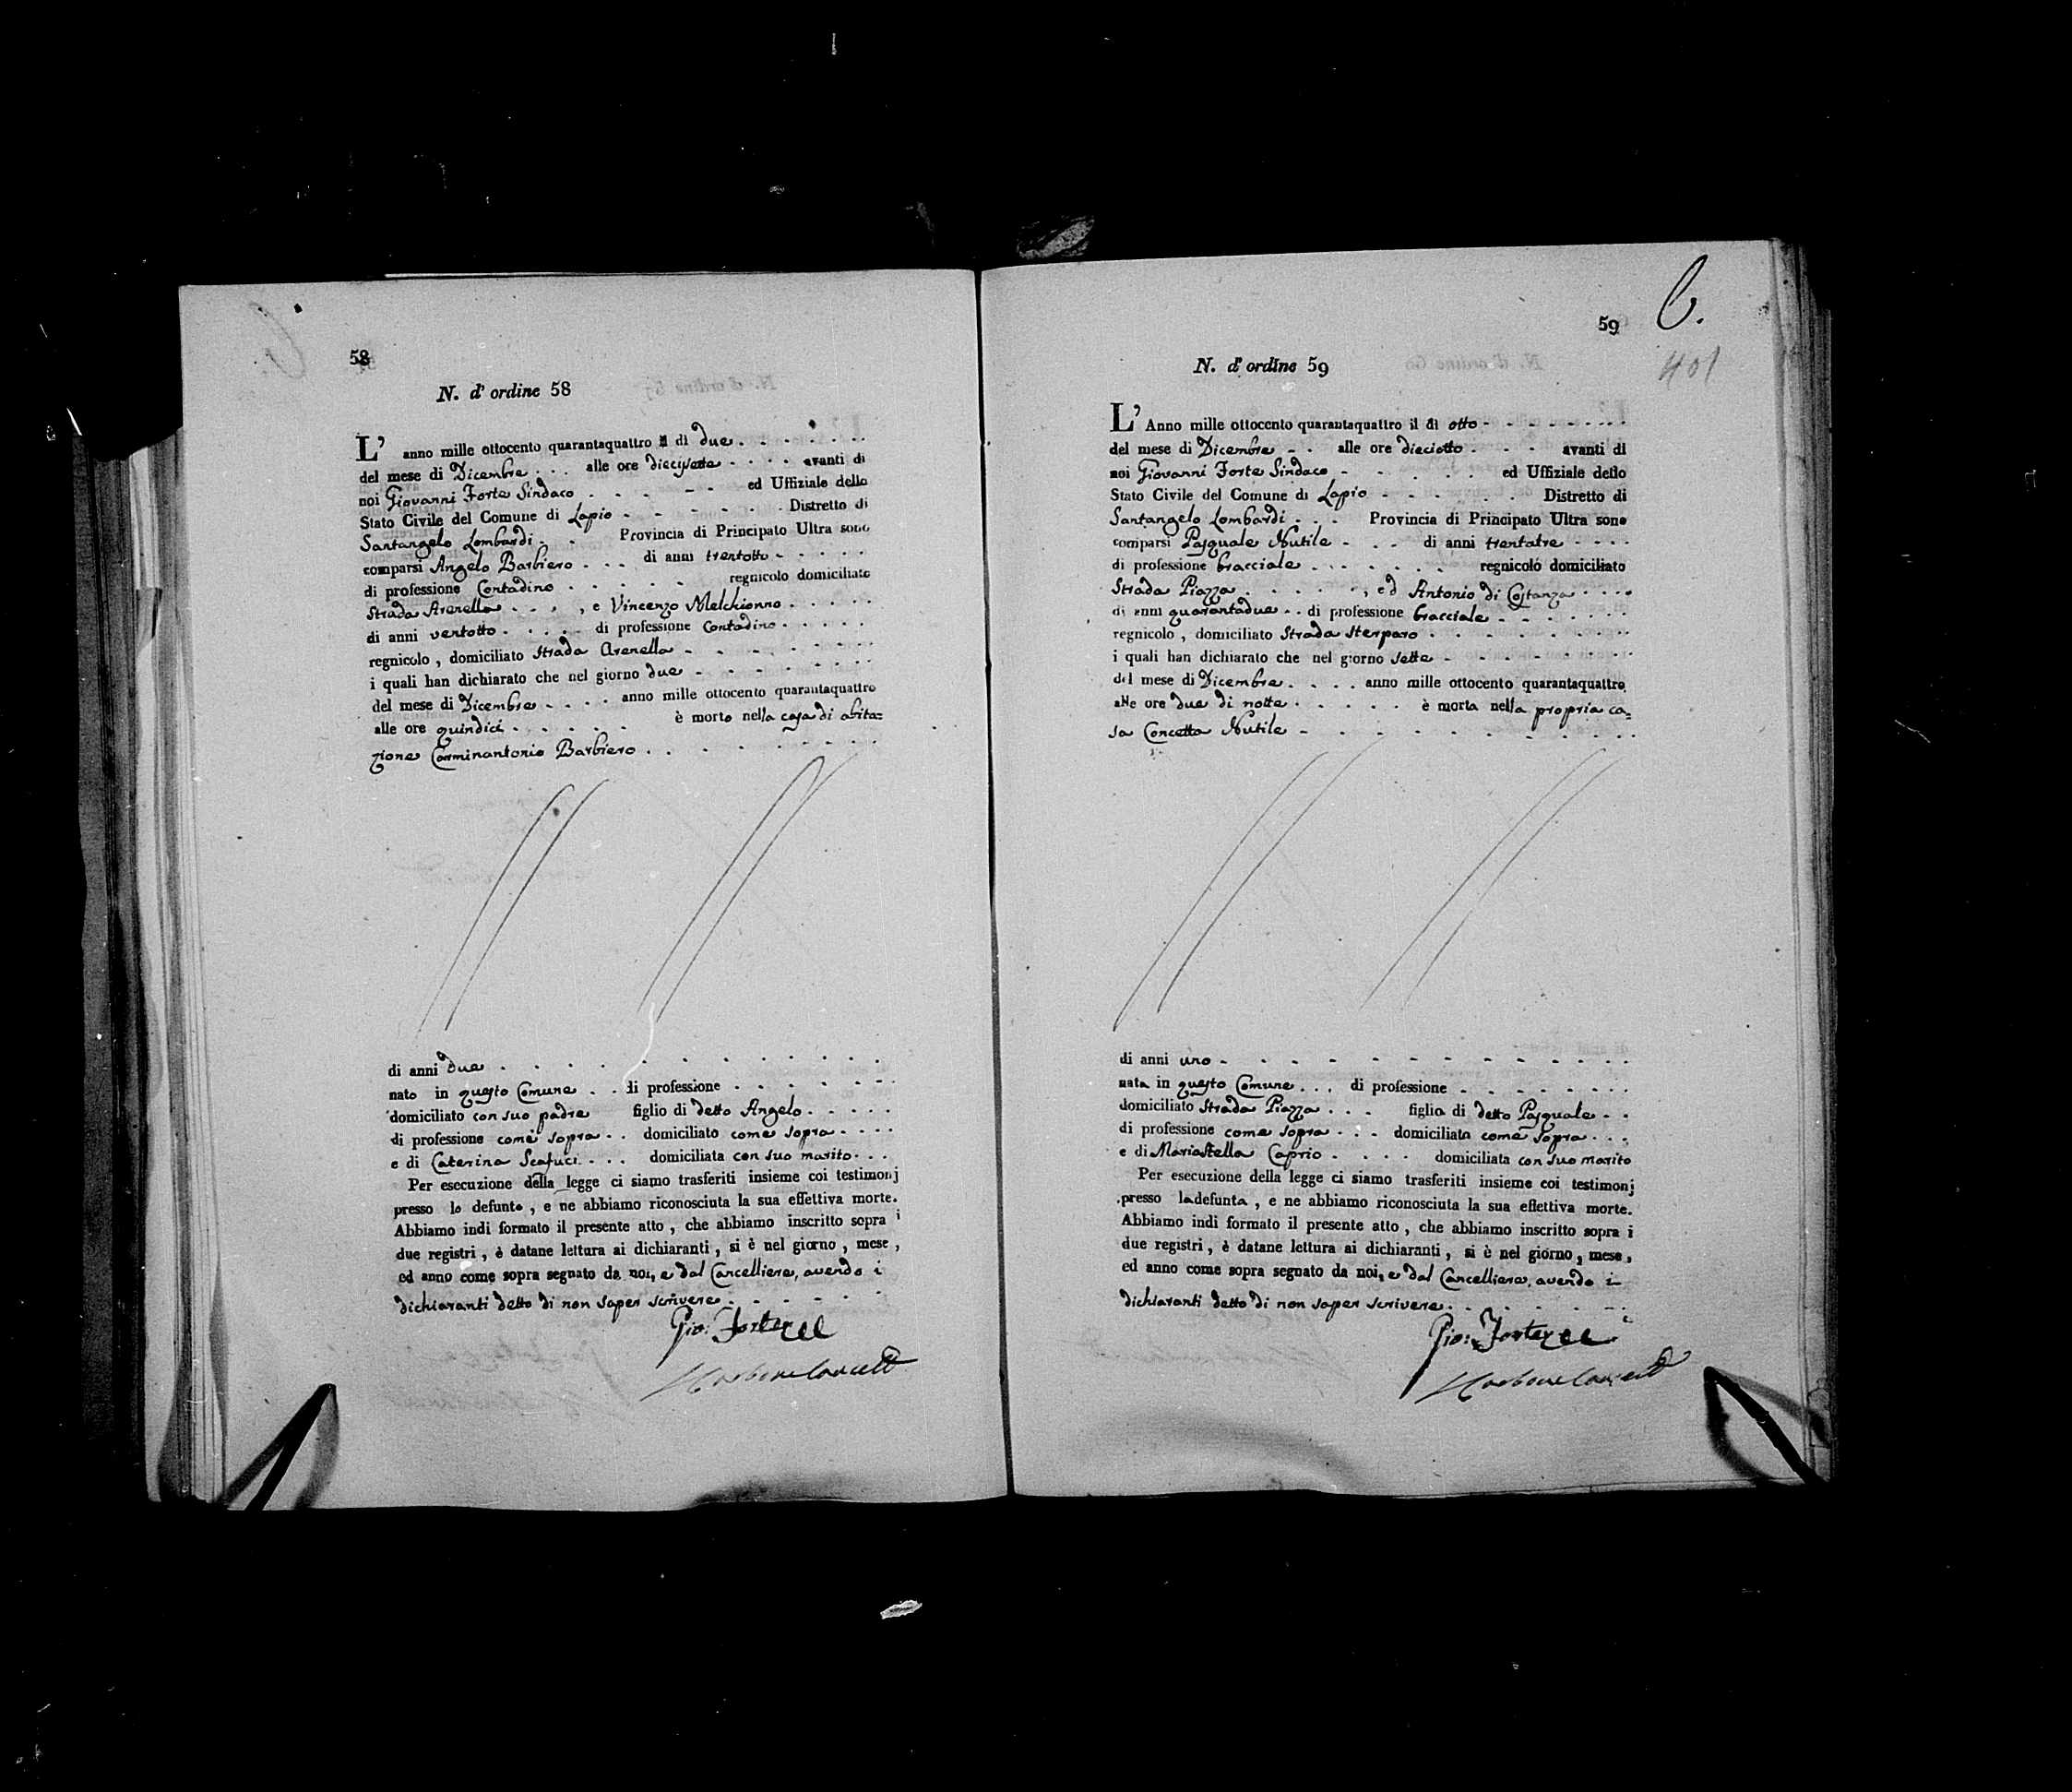 58
N. d' ordine 58
L' anno mille ottocento quarantaquattro il dì due
del mese di Dicembre alle ore diecisette avanti di
noi Giovanni Forte Sindaco ed Uffiziale dello
Stato Civile del Comune di Lapio Distretto di
Santangelo Lombardi Provincia di Principato Ultra sono
comparsi Angelo Barbiero di anni trentotto
di professione Contadino regnicolo domiciliato
Strada Arenella , e Vincenzo Melchionno
di anni ventotto di professione Contadino
regnicolo , domiciliato Strada Arenella
i quali han dichiarato che nel giorno due
del mese di Dicembre anno mille ottocento quarantaquattro
alle ore quindici è morto nella casa di abita=
zione Carminantonio Barbiero
di anni due
nato in questo Comune di professione
domiciliato con suo padre figlio di detto Angelo
di professione come sopra domiciliato come sopra
e di Caterina Scafuci domiciliata con suo marito
Per esecuzione della legge ci siamo trasferiti insieme coi testimonj
presso lo defunto , e ne abbiamo riconosciuta la sua effettiva morte.
Abbiamo indi formato il presente atto , che abbiamo inscritto sopra i
due registri , è datane lettura ai dichiaranti , si è nel giorno , mese ,
ed anno come sopra segnato da noi, e dal Cancelliere, avendo i
dichiaranti detto di non saper scrivere
Gio: Forte
59
C.
401
N. d' ordine 59
L' Anno mille ottocento quarantaquattro il dì otto
del mese di Dicembre alle ore dieciotto avanti di
noi Giovanni Forte Sindaco ed Uffiziale dello
Stato Civile del Comune di Lapio Distretto di
Santangelo Lombardi Provincia di Principato Ultra sono
comparsi Pasquale Nutile di anni trentatre
di professione bracciale regnicolo domiciliato
Strada Piazza , ed Antonio di Costanza
di anni quarantadue di professione bracciale
regnicolo , domiciliato Strada Sterparo
i quali han dichiarato che nel giorno sette
del mese di Dicembre anno mille ottocento quarantaquattro
alle ore due di notte è morta nella propria ca=
sa Concetta Nutile
di anni uno
nata in questo Comune di professione
domiciliato Strada Piazza figlia di detto Pasquale
di professione come sopra domiciliato come sopra
e di Mariastella Caprio domiciliata con suo marito
Per esecuzione della legge ci siamo trasferiti insieme coi testimonj
presso la defunta , e ne abbiamo riconosciuta la sua effettiva morte.
Abbiamo indi formato il presente atto , che abbiamo inscritto sopra i
due registri , è datane lettura ai dichiaranti , si è nel giorno , mese ,
ed anno come sopra segnato da noi, e dal Cancelliere, avendo i
dichiaranti detto di non saper scrivere
Gio: Forte